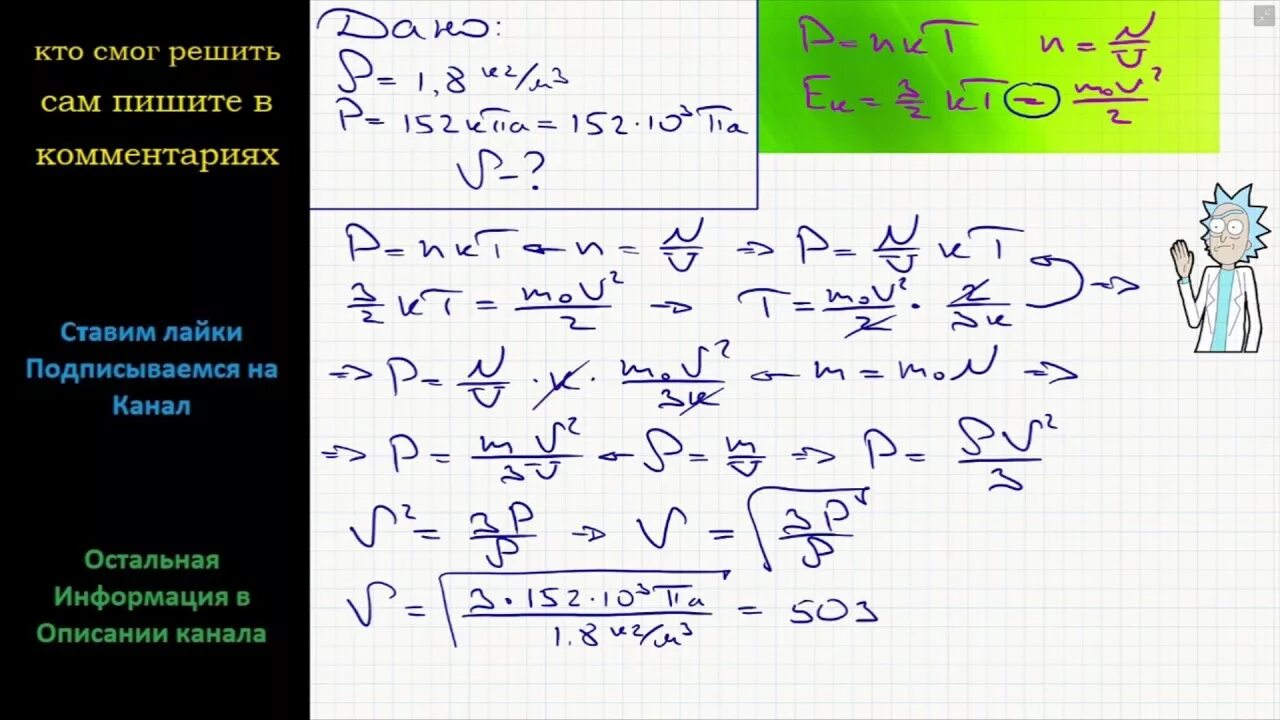 кто смог решить
сам пишите в
комментариях
Ставим лайки
Подписываемся на
Канал
Остальная
Информация в
Описании канала
Дано:
ρ = 1,8 кг/м³
P = 152 кПа = 152·10³ Па
v - ?
P = nkT n = N/V
Eк = 3/2 kT = m₀v²/2
P = nkT ← n = N/V ⇒ P = N/V kT
3/2 kT = m₀v²/2 → T = m₀v²/2 · 2/3k ⇒
⇒ P = N/V · k · m₀v²/3k ← m = m₀N ⇒
⇒ P = mv²/3V ← ρ = m/V ⇒ P = ρv²/3
v² = 3P/ρ → v = √(3P/ρ)
v = √(3·152·10³ Па/1.8 кг/м³) = 503